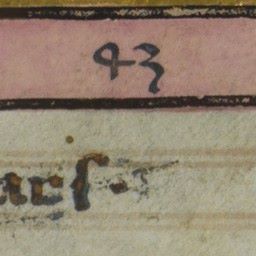 43
arſ.